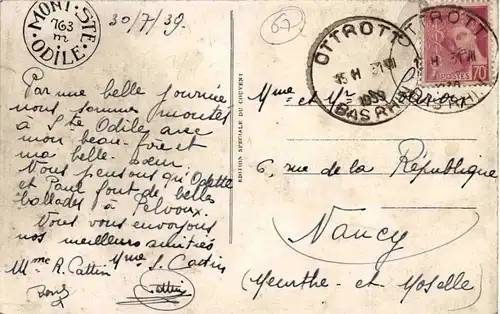 MONT. STE. ODILE.
763
m
30/7/39.
67
OTTROTT
15 H 31 VII
1939
BAS RHIN
OTTROTT
POSTES
70
EDITION SPECIALE DU COUVENT
Par une belle journée
nous sommes montés
à Ste Odile avec
mon beau-
ma belle-sœur
Nous pensons qu'Odette
et Paul font de belles
ballades à Pelvoux.
Nous vous envoyons
nos meilleurs amitiés
Mme R. Cattin
Mme S. Cattin
Cattin
Mme et Mr
6, rue de la République
Nancy
(Meurthe et Moselle)